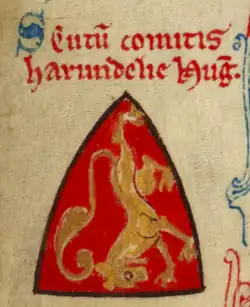 Scutū comitis
harundelie Hug̅.